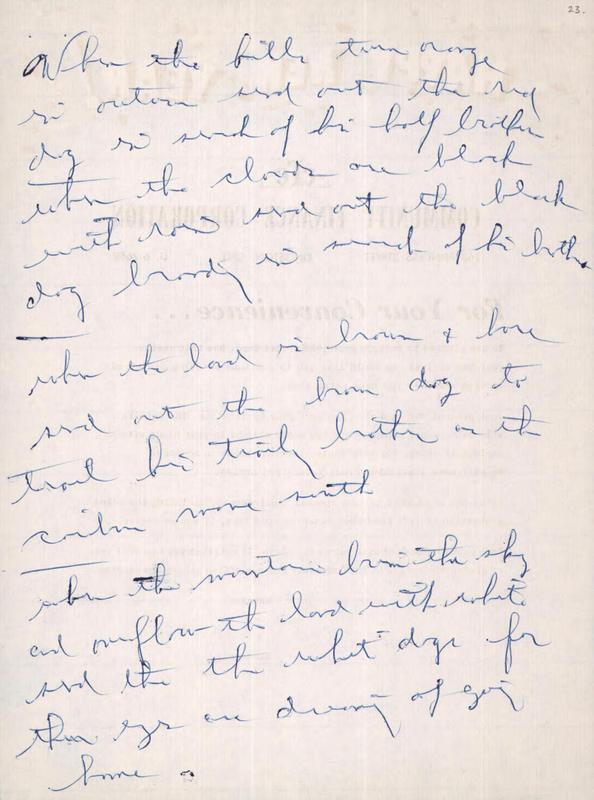 23.
When the hills turn orange
in autumn send out the red
dog in search of his half brother
when the clouds are black
with rain send out the black
dog in search of his brother
when the land is brown & bare
send out the brown dog to
trail his brother on the
move south
when the mountains the sky
and overflow the land with white
send the the white dogs for
their eyes are dreaming of going
home
COMMUNITY FINANCE CORPORATION
For Your Convenience...